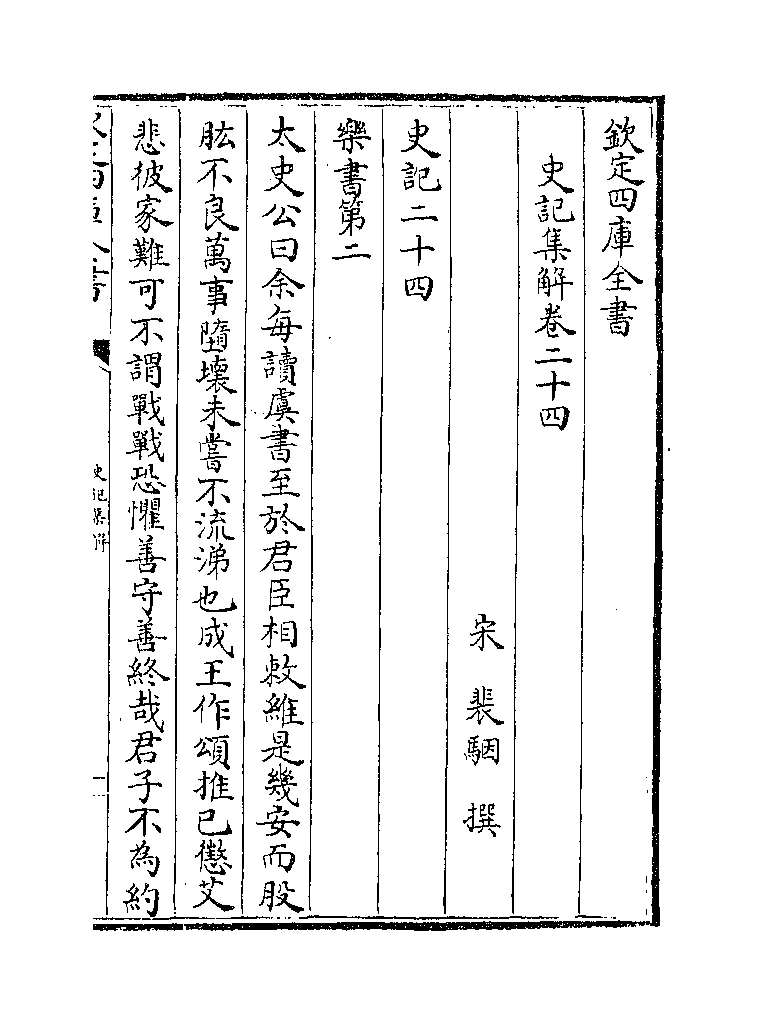 欽定四庫全書
史記集解卷二十四
宋 裴駰 撰
史記二十四
樂書第二
太史公曰余每讀虞書至於君臣相敕維是幾安而股
肱不良萬事墮壞未嘗不流涕也成王作頌推已懲艾
悲彼家難可不謂戰戰恐懼善守善終哉君子不為約
史記集解